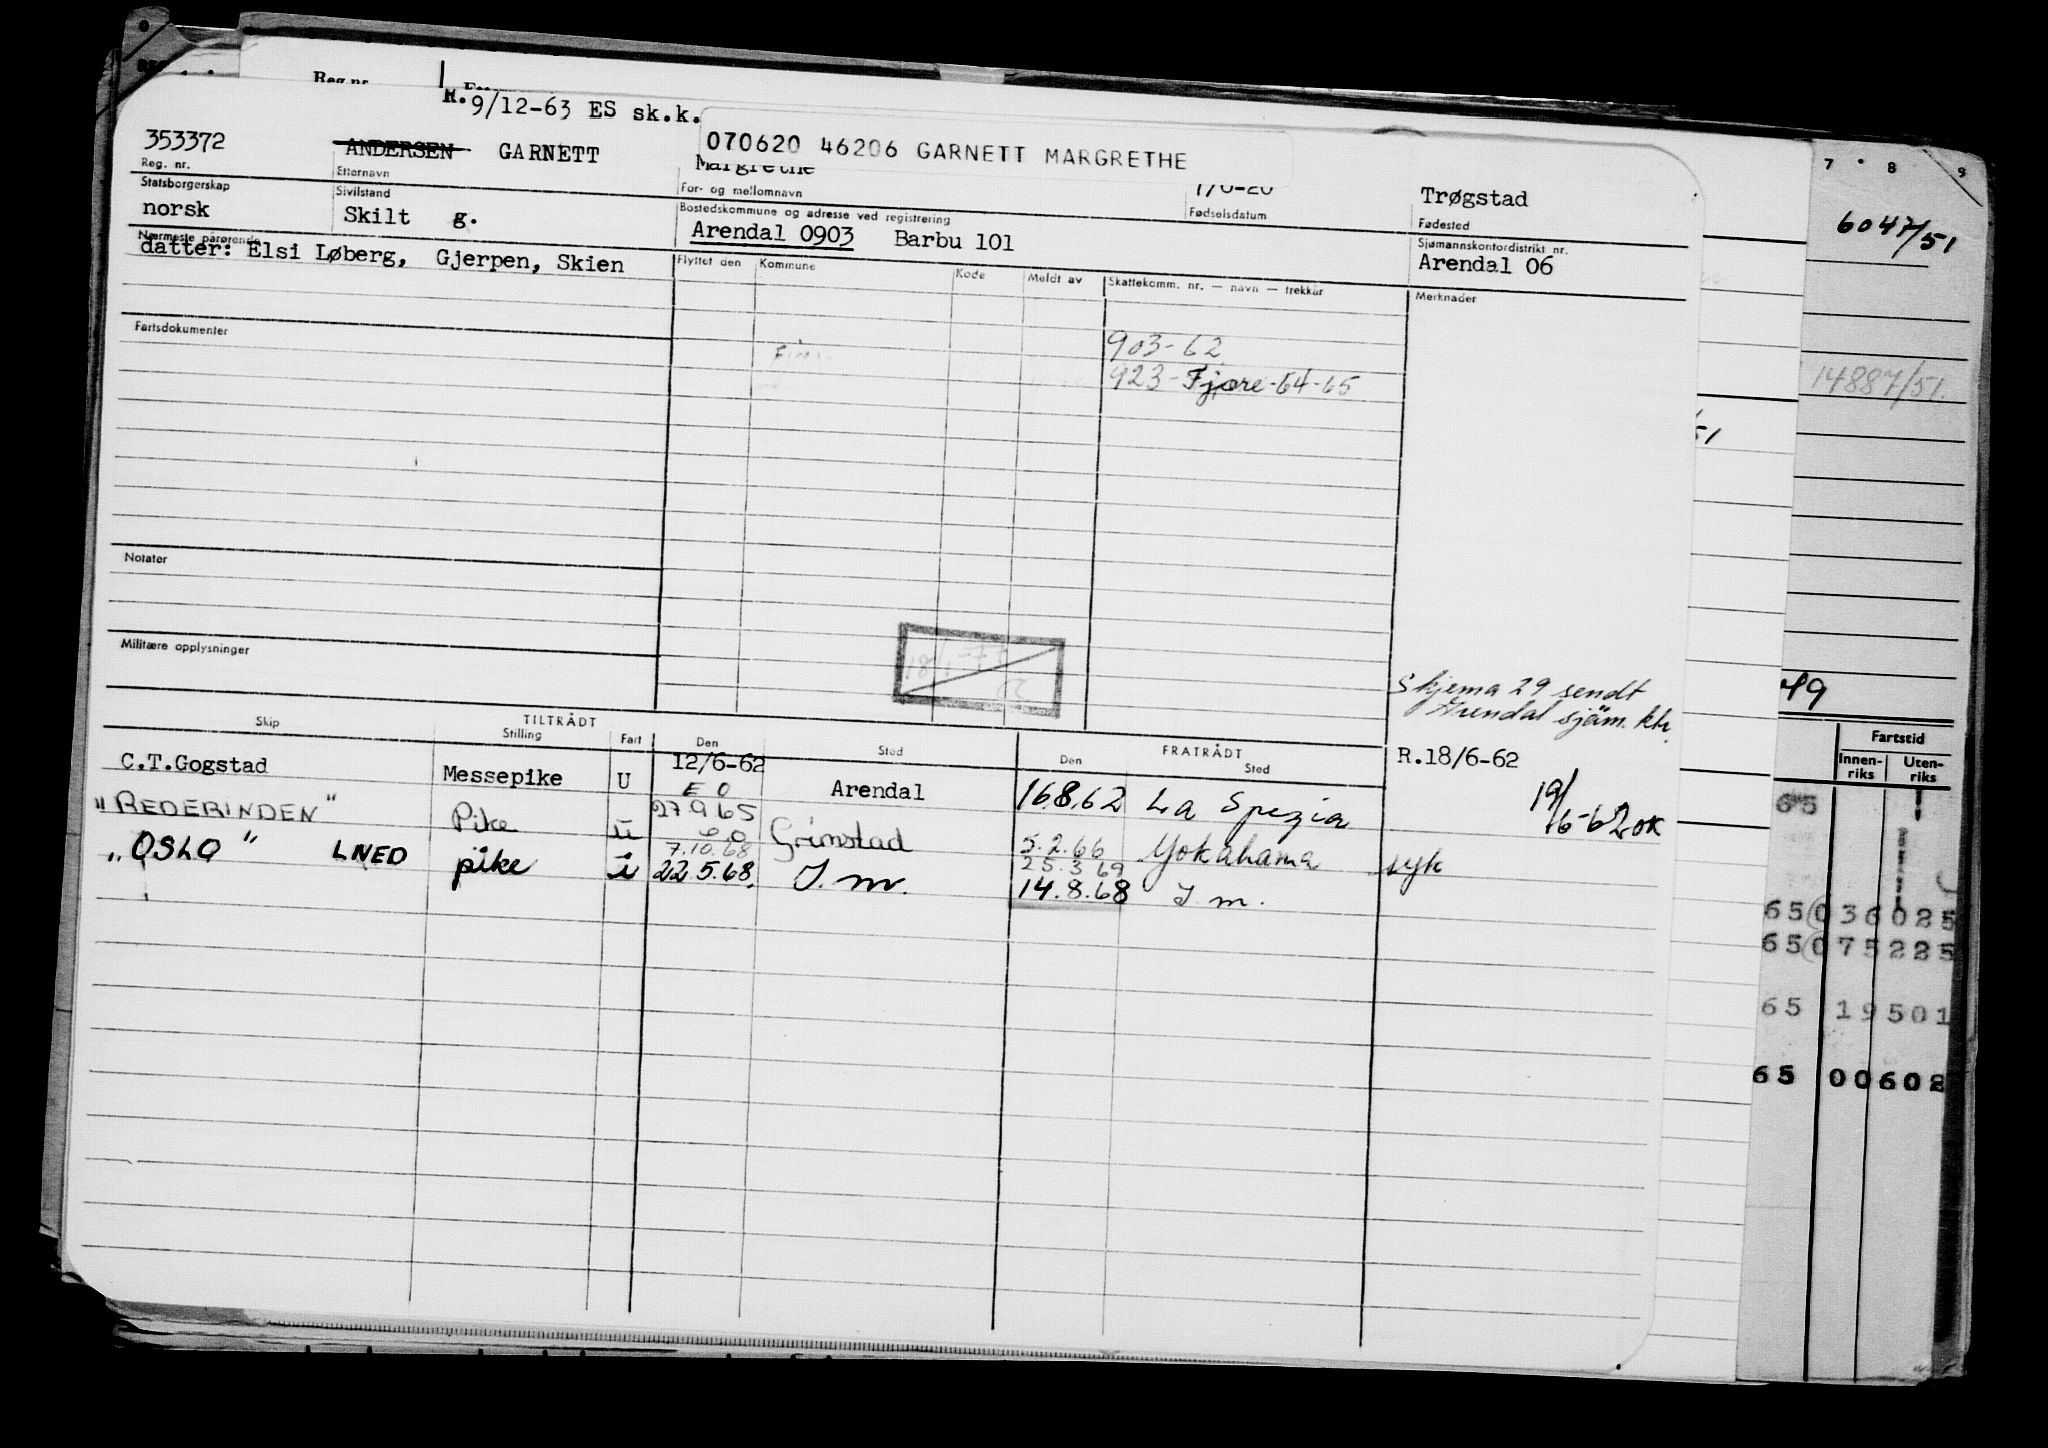 R.9/12-63 ES sk.k.
070620 46206 GARNETT MARGRETHE
353372 ANDERSEN GARNETT Margrethe Trøgstad
Reg. nr. Etternavn For- og mellomnavn Fødselsdatum Fødested
Statsborgerskap Sivilstand Bostedskommune og adresse ved registrering Sjømannskontordistrikt nr.
norsk Skilt g. Arendal 0903 Barbu 101 Arendal 06
Nærmeste pårørende
datter: Elsi Løberg, Gjerpen, Skien
Flyttet den Kommune Kode Meldt av Skattekomm. nr. — navn — trekkår Merknader
Fartsdokumenter
903-62
923-Fjære-64-65
Notater
Militære opplysninger
Skjema 29 sendt
Arendal sjøm. ktr.
Skip TILTRÅDT FRATRÅDT
Stilling Fart Den Sted Den Sted
C.T.Gogstad Messepike U 12/6-62 Arendal 16.8.62 La Spezia R.18/6-62
19/6-62 OK
"REDERINDEN" Pike U 27.9.65 Grimstad 5.2.66 Yokahama syk
7.10.68 25.3.69
"OSLO" LNED pike U 22.5.68. I.m. 14.8.68 I m.
7 8 9
6047/51
14887/51.
49
Fartstid
Innenriks Utenriks
65
65 036025
65 075225
65 19501
65 00602